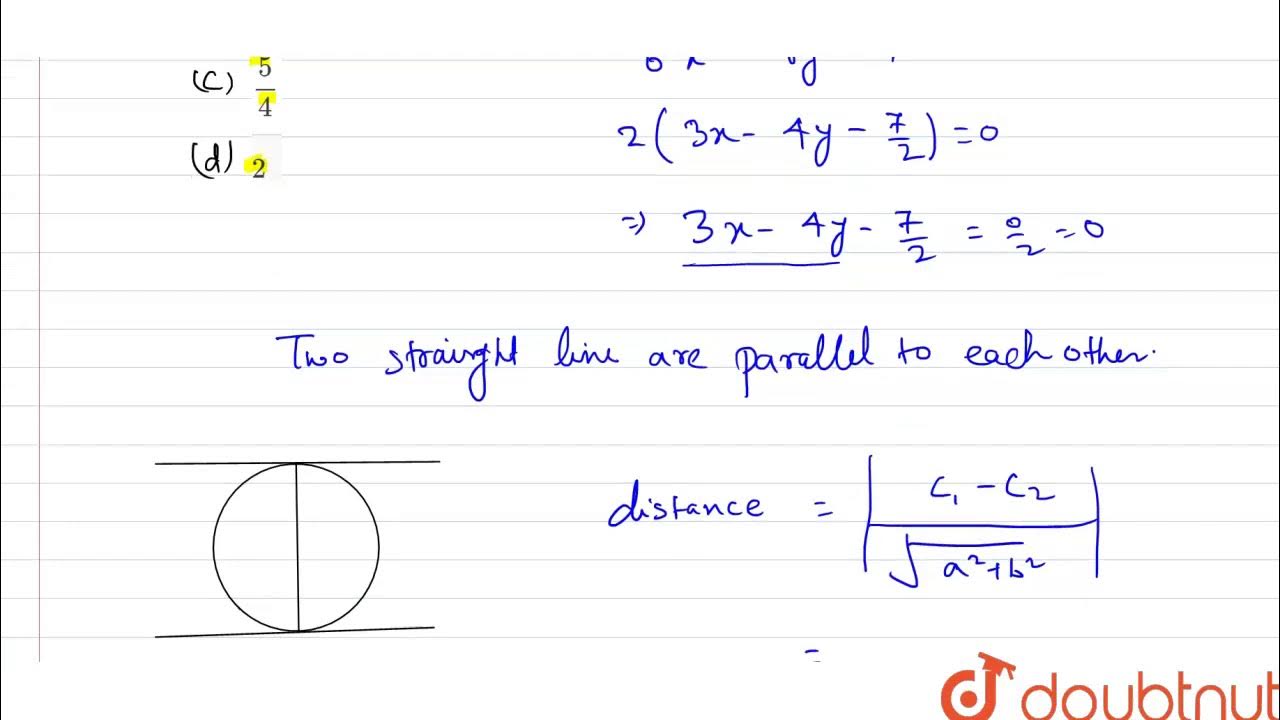 (C) 5/4
2(3x - 4y - 7/2) = 0
(d) 2
=) 3x - 4y - 7/2 = 0/2 = 0
Two strairght line are parallel to each other.
distance = | C₁ - C₂ / √a²+b² |
=
doubtnut